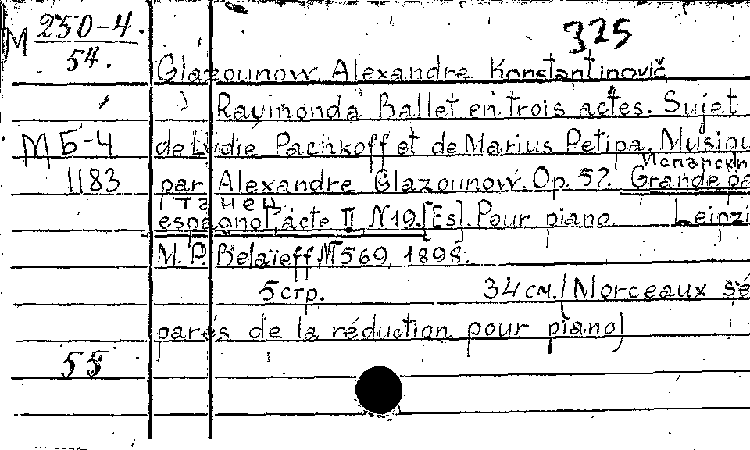 М 250-4.
54.
325
Glazounow, Alexandre Konstantinovič
Raymonda Ballet en trois actes. Sujet
М Б-4
de Lydie Pachkoff et de Marius Petipa. Musiqu
Испански
1183
par Alexandre Glazounow. Op. 57. Grande pa
танец
espagnol, acte II, N19. [Es]. Pour piano. Leipzi
M. P. Belaïeff, N 569, 1898.
5 стр. 34 см. / Morceaux sé
parés de la réduction pour piano)
55